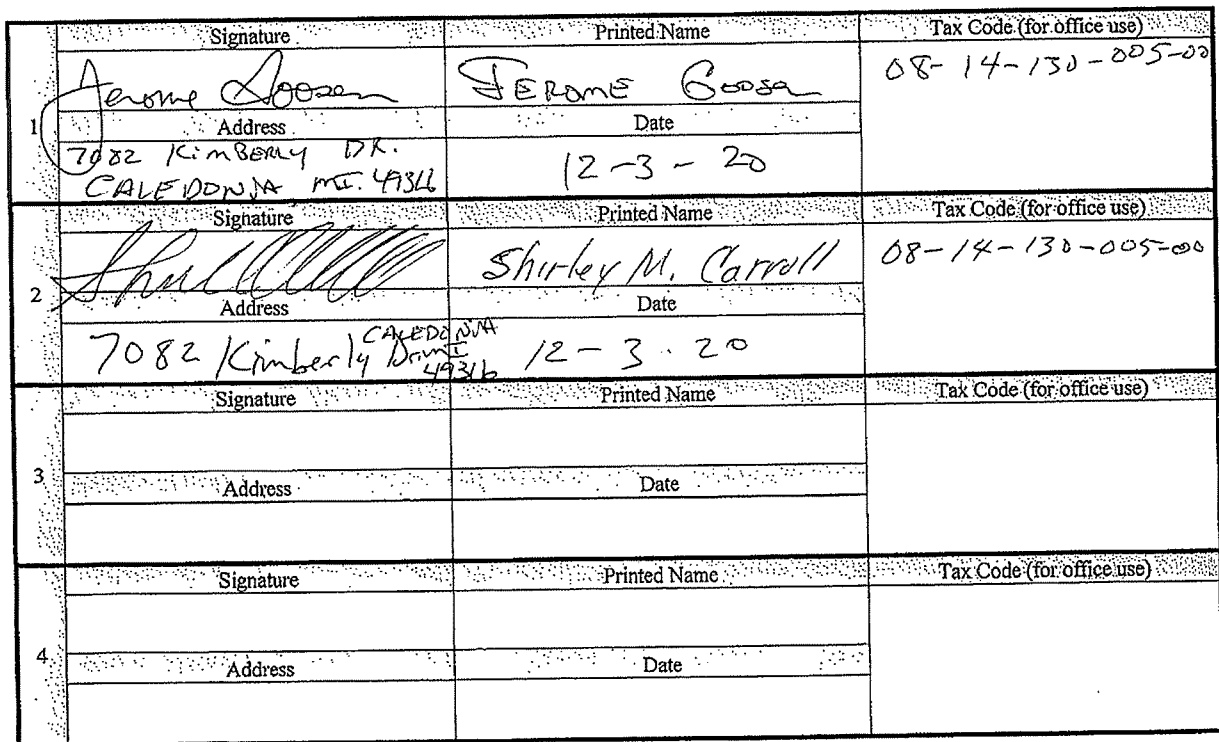 Signature Printed Name Tax Code (for office use)
Jerome Goosen JEROME Goosen 08-14-130-005-00
1 Address Date
7082 KimBERLY DR. 12-3-20
CALEDONIA MI. 49316
Signature Printed Name Tax Code (for office use)
Shirley M. Carroll 08-14-130-005-00
2 Address Date
7082 Kimberly Drive CALEDONIA MI 49316 12-3-20
Signature Printed Name Tax Code (for office use)
3 Address Date
Signature Printed Name Tax Code (for office use)
4 Address Date